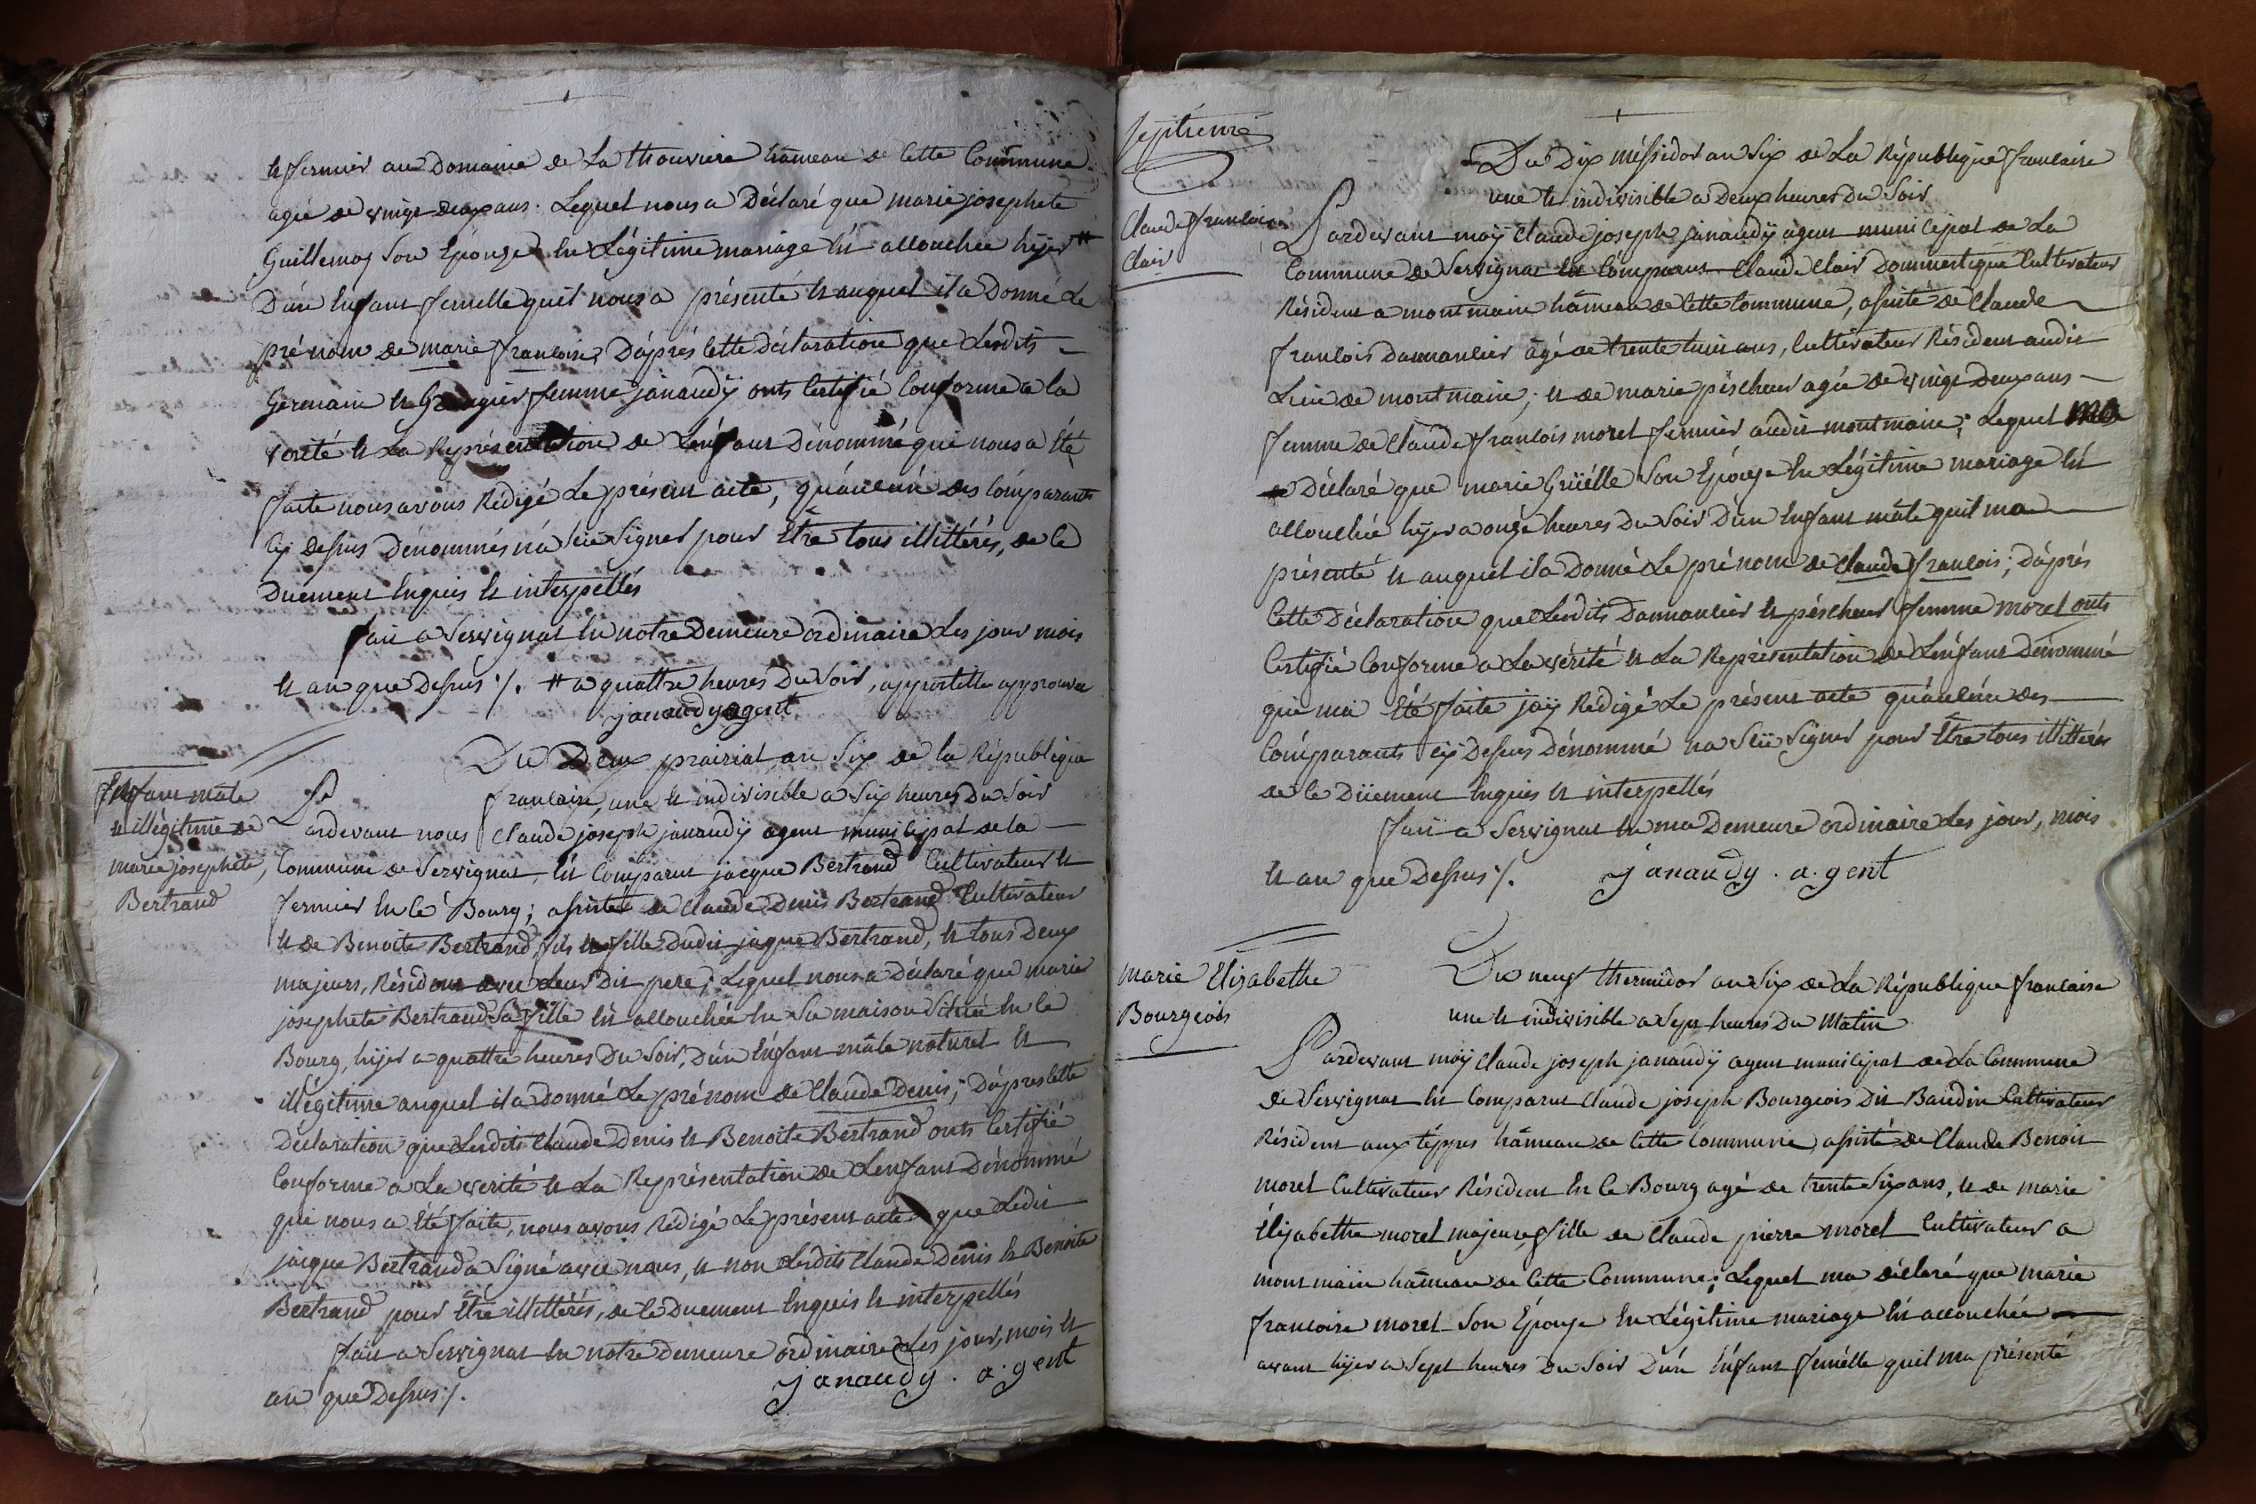 et fermier au Domaine de La thouviere hâmeau de Cette Commune
agée de vingt deux ans. Lequel nous a Déclaré que marie josephete
Guillemot Son Epouse En Légitime mariage Est accouchée hijer #
D'un Enfant femelle qu'il nous a présenté et auquel il a Donné Le
pré nom de marie francoise, D'àprés Cette déclaration que Lesdits
Germain et Grangier femme janaudÿ onts Certifié Conforme a la
verité et La Représentation de L'enfant Dénommé qui nous a Eté
faite nous avons Rédigé Le présent acte, qu'aucun des Comparants
Cÿ dessus Dénommés n'a Sçu Signer pour Etre tous illittérés, de Ce
Duement Enquis et interpellés
fait a Servignat En notre Demeure ordinaire Les jour mois
et an que Dessus ./. # a quattre heures Du Soir, appostille approuvée
janaudy agent
Du Deux prairial an Six de la République
francaise, une et indivisible a Six heures Du Soir
Enfant mâle
et illégitime de
marie josephete,
Bertrand
Pardevant nous Claude joseph janaudÿ agent municipal de la
Commune de Servignat, Est Comparut jacque Bertrand Cultivateur et
fermier En Ce Bourg; assisté de Claude Denis Bertrand Cultivateur
et de Benoite Bertrand, fils et fille dudit jaque Bertrand, et tous Deux
majeurs, Résidents avec Leur Dit pere; Lequel nous a Déclaré que marie
josephete Bertrand Sa fille Est accouchée En Sa maison Située En Ce
Bourg, hijer a quattre heures Du Soir, D'un Enfant mâle naturel et
illégitime auquel il a donné Le pré nom de Claude Denis; D'àpres Cette
Déclaration que Lesdits Claude Denis et Benoite Bertrand onts Certifié
Conforme a La verité et La Représentation de L'enfant Dénommé
qui nous a Eté faite, nous avons Rédigé Le présent acte que Ledit
jacque Bertrand a Signé avec nous, et non Lesdits Claude Denis et Benoite
Bertrand pour Etre illittérés, de Ce Duement Enquis et interpellés
fait a Servignat En notre Demeure ordinaire Les jour, mois et
an que Dessus ./.
janaudy . a.gent
Claude francois
Clair
Du Dix méssidor an Six de La République francaise
une et indivisible a Deux heures Du Soir
Pardevant moÿ Claude joseph janaudÿ agent municipal de La
Commune de Servignat Est Comparut Claude Clair Dommestique Cultivateur
Résident a montmain hâmeau de Cette Commune, assisté de Claude
francois Dannancier âgé de trente trois ans, Cultivateur Résident audit
Lieu de montmain; et de marie pêscheur agée de vingt Deux ans
femme de Claude francois morel fermier audit montmain; Lequel ma
Déclaré que marie Guïélle Son Epouse En Légitime mariage Est
accouchée hijer a onze heures Du Soir D'un Enfant mâle qu'il ma
présenté et auquel il a Donné Le pré nom de Claude francois; D'àprés
Cette Déclaration que Lesdits Dannancier et pêscheur femme morel onts
Certifié Conforme a La vérité et La Représentation de L'enfant Dénommé
qui ma Eté faite jaÿ Rédigé Le présent acte qu'aucun des
Comparants cÿ Dessus Dénommé na Sçu Signer pour Etre tous illittérés
de Ce Düement Enquis et interpellés
fait a Servignat En ma Demeure ordinaire Les jour, mois
et an que Dessus ./.
janaudy . a.gent
marie Elisabethe
Bourgeois
Du neuf thermidor an Six de La République francaise
une et indivisible a Sept heures Du Matin
Pardevant moÿ Claude joseph janaudÿ agent municipal de La Commune
de Servignat Est Comparut Claude joseph Bourgeois Dit Baudin Cultivateur
Résident aux téppes hâmeau de Cette Commune, assisté de Claude Benoit
morel Cultivateur Résident En Ce Bourg agé de trente Six ans, et de marie
Elisabethe morel majeure, fille de Claude pierre morel Cultivateur a
mont main hâmeau de Cette Commune; Lequel ma déclaré que marie
francoise morel Son Epouse En Légitime mariage Est accouchée
avant hijer a Sept heures Du Soir D'un Enfant femélle qu'il ma présenté